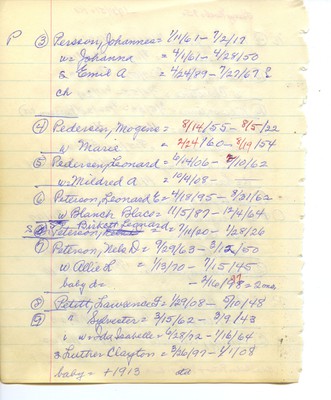 P ③ Persson, Johannes = 1/11/61 – 7/2/17
w = Johanna = 4/1/61 – 4/28/50
s Emil A = 2/24/89 – 7/27/67
ch
④ Pedersen, Mogens = 8/14/55 – 8/5/22
w Marie = 2/24/60 – 8/19/54
⑤ Pedersen, Leonard = 6/14/06 – 2/10/62
w = Mildred A = 10/4/08 –
⑥ Peterson, Leonard E = 4/18/95 – 8/21/62
w Blanch Blaco = 11/5/87 – 12/4/64
Birkett Leonard
Peterson, = 7/11/20 – 1/28/26
⑦ Peterson, Nels D = 9/29/63 – 3/2/50
w. Allie L = 1/3/70 – 7/15/45
baby d = – 2/16/ = 2 mos
⑧ Petitt, Lawrence = 1/29/08 – 9/10/48
⑨ " Sylvester = 3/15/62 – 3/9/43
w = Ida Isabelle = 4/28/72 – 1/16/64
s Luther Clayton = 3/26/97 – 1/1/08
baby = + 1913